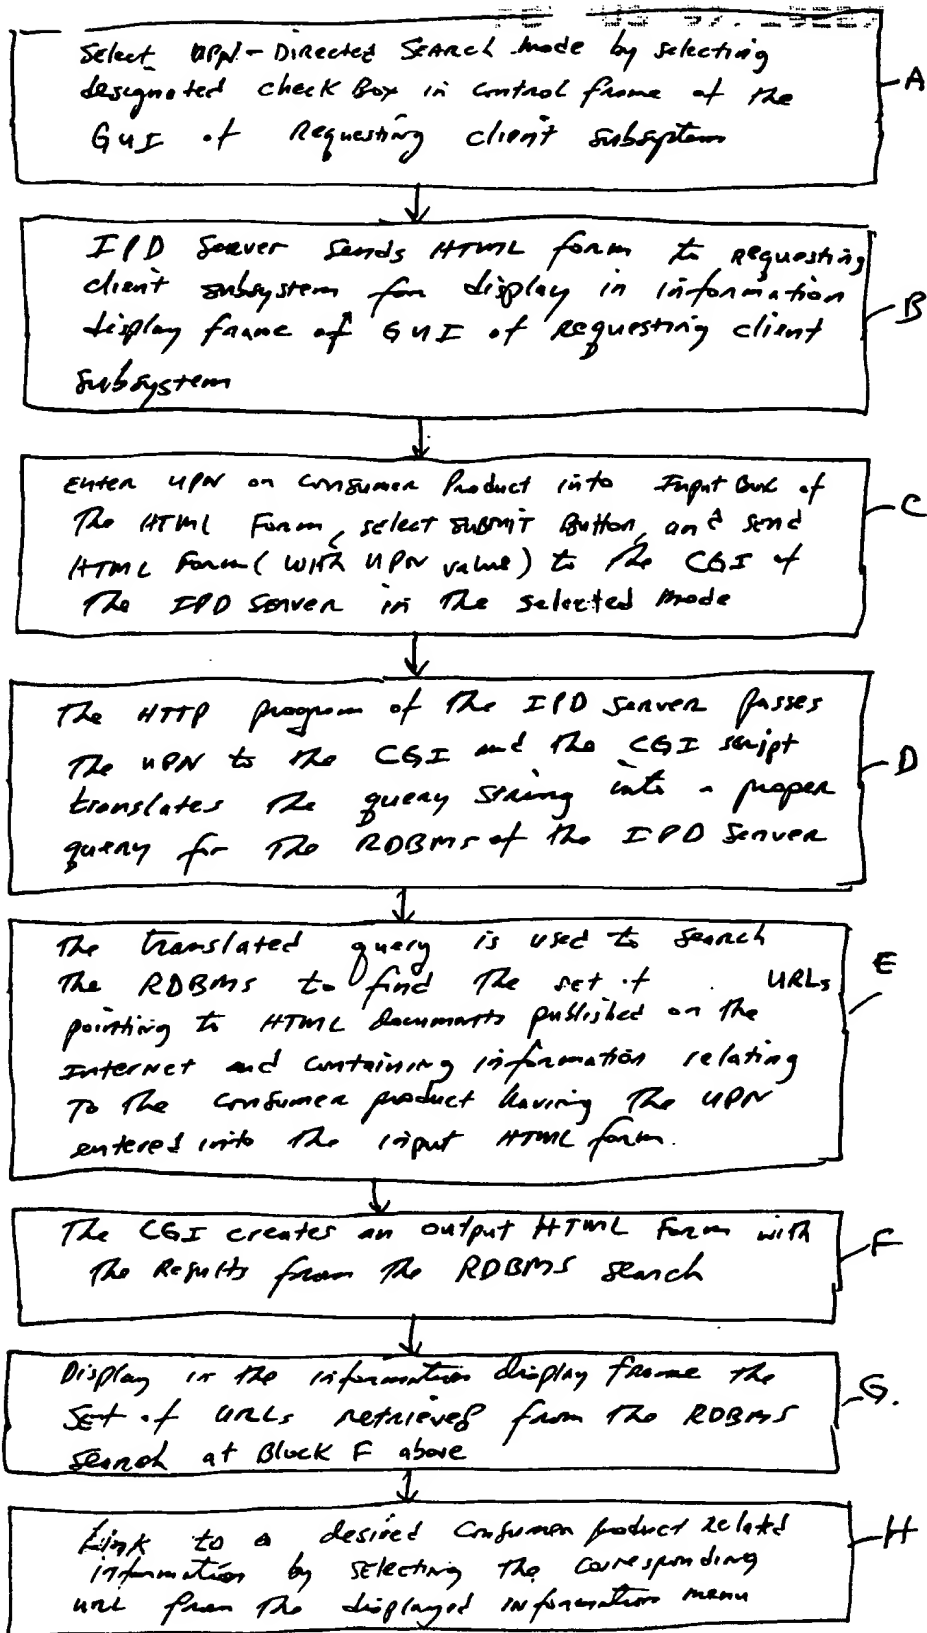 Select UPN-Directed Search mode by selecting
designated check Box in control frame of the
GUI of Requesting client subsystem
A
IPD Server Sends HTML form to requesting
client subsystem for display in information
display frame of GUI of requesting client
subsystem
B
Enter UPN on Consumer Product into Input Box of
The HTML Form, select submit Button, and send
HTML Form (with UPN value) to the CGI of
The IPD Server in the selected mode
C
The HTTP program of the IPD Server passes
The UPN to the CGI and the CGI script
translates the query string into a proper
query for the RDBMS of the IPD Server
D
The translated query is used to search
the RDBMS to find the set of URLs
pointing to HTML documents published on the
Internet and containing information relating
To the consumer product having the UPN
entered into the input HTML form.
E
The CGI creates an output HTML Form with
the Results from the RDBMS search
F
Display in the information display frame the
Set of URLs retrieved from the RDBMS
search at Block F above
G.
Link to a desired Consumer product Related
information by selecting the corresponding
URL from the displayed information menu
H